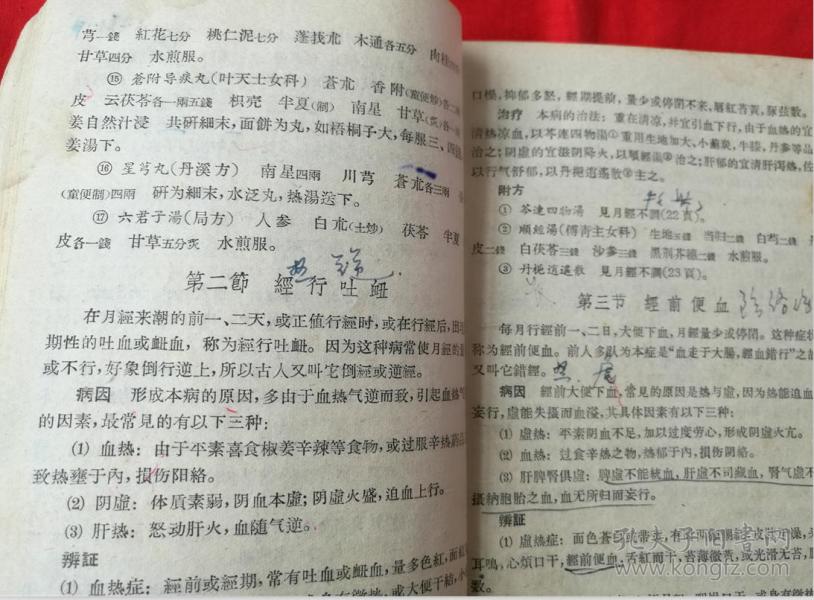 芎一錢 紅花七分 桃仁泥七分 蓬莪朮 木通各五分 肉桂
甘草四分 水煎服。
⑮ 蒼附导痰丸(叶天士女科) 蒼朮 香附(童便炒)各二
皮 云茯苓各一兩五錢 枳壳 半夏(制) 南星 甘草(炙)各一
姜自然汁浸 共研細末,面餅为丸,如梧桐子大,每服三、四
姜湯下。
⑯ 星芎丸(丹溪方) 南星四兩 川芎 蒼朮各三兩
(童便制)四兩 研为細末,水泛丸,热湯送下。
⑰ 六君子湯(局方) 人参 白朮(土炒) 茯苓 半夏
皮各一錢 甘草五分炙 水煎服。
第二節 經行吐衄
在月經来潮的前一、二天,或正值行經时,或在行經后,出
期性的吐血或衄血,称为經行吐衄。因为这种病常使月經
或不行,好象倒行逆上,所以古人又叫它倒經或逆經。
病因 形成本病的原因,多由于血热气逆而致,引起血热
的因素,最常見的有以下三种:
(1) 血热:由于平素喜食椒姜辛辣等食物,或过服辛热药品
致热壅于內,損伤阳絡。
(2) 阴虛:体质素弱,阴血本虛;阴虛火盛,迫血上行。
(3) 肝热:怒动肝火,血随气逆。
辨証
(1) 血热症:經前或經期,常有吐血或衄血,量多色紅,面
有微热,或大便干結,小
口燥,抑郁多怒,經期提前,量少或停閉不来,唇紅苔黄,脉弦数。
治疗 本病的治法:重在清凉,并宜引血下行,由于血热的宜
清热凉血,以芩連四物湯①重用生地加大、小薊炭,牛膝,丹参等品
治之;阴虛的宜滋阴降火,以順經湯②治之;肝郁的宜清肝泻热,佐
以行气舒郁,以丹梔逍遙散③主之。
附方
① 芩連四物湯 見月經不調(22頁)。
② 順經湯(傅青主女科) 生地五錢 当归二錢 白芍二錢
皮二錢 白茯苓三錢 沙参三錢 黑荆芥穗二錢 水煎服。
③ 丹梔逍遙散 見月經不調(23頁)。
第三节 經前便血
每月行經前一、二日,大便下血,月經量少或停閉。这种症状
称为經前便血。前人多认为本症是“血走于大腸,經血錯行”之故
又叫它錯經。
病因 經前大便下血,常見的原因是熱与虛,因为热能迫血
妄行,虛能失攝而血溢,其具体因素有以下三种:
(1) 虛热:平素阴血不足,加以过度劳心,形成阴虛火亢。
(2) 血热:过食辛热之物,热郁于內,損伤阴絡。
(3) 肝脾腎俱虛:脾虛不能統血,肝虛不司藏血,腎气虛不
攝納胞胎之血,血无所归而妄行。
辨証
(1) 虛热症:面色蒼白
耳鳴,心煩口干,經前便血,舌紅而干,苔薄微黄,或光滑无苔,脉
数。
孔夫子旧书网
www.kongfz.com